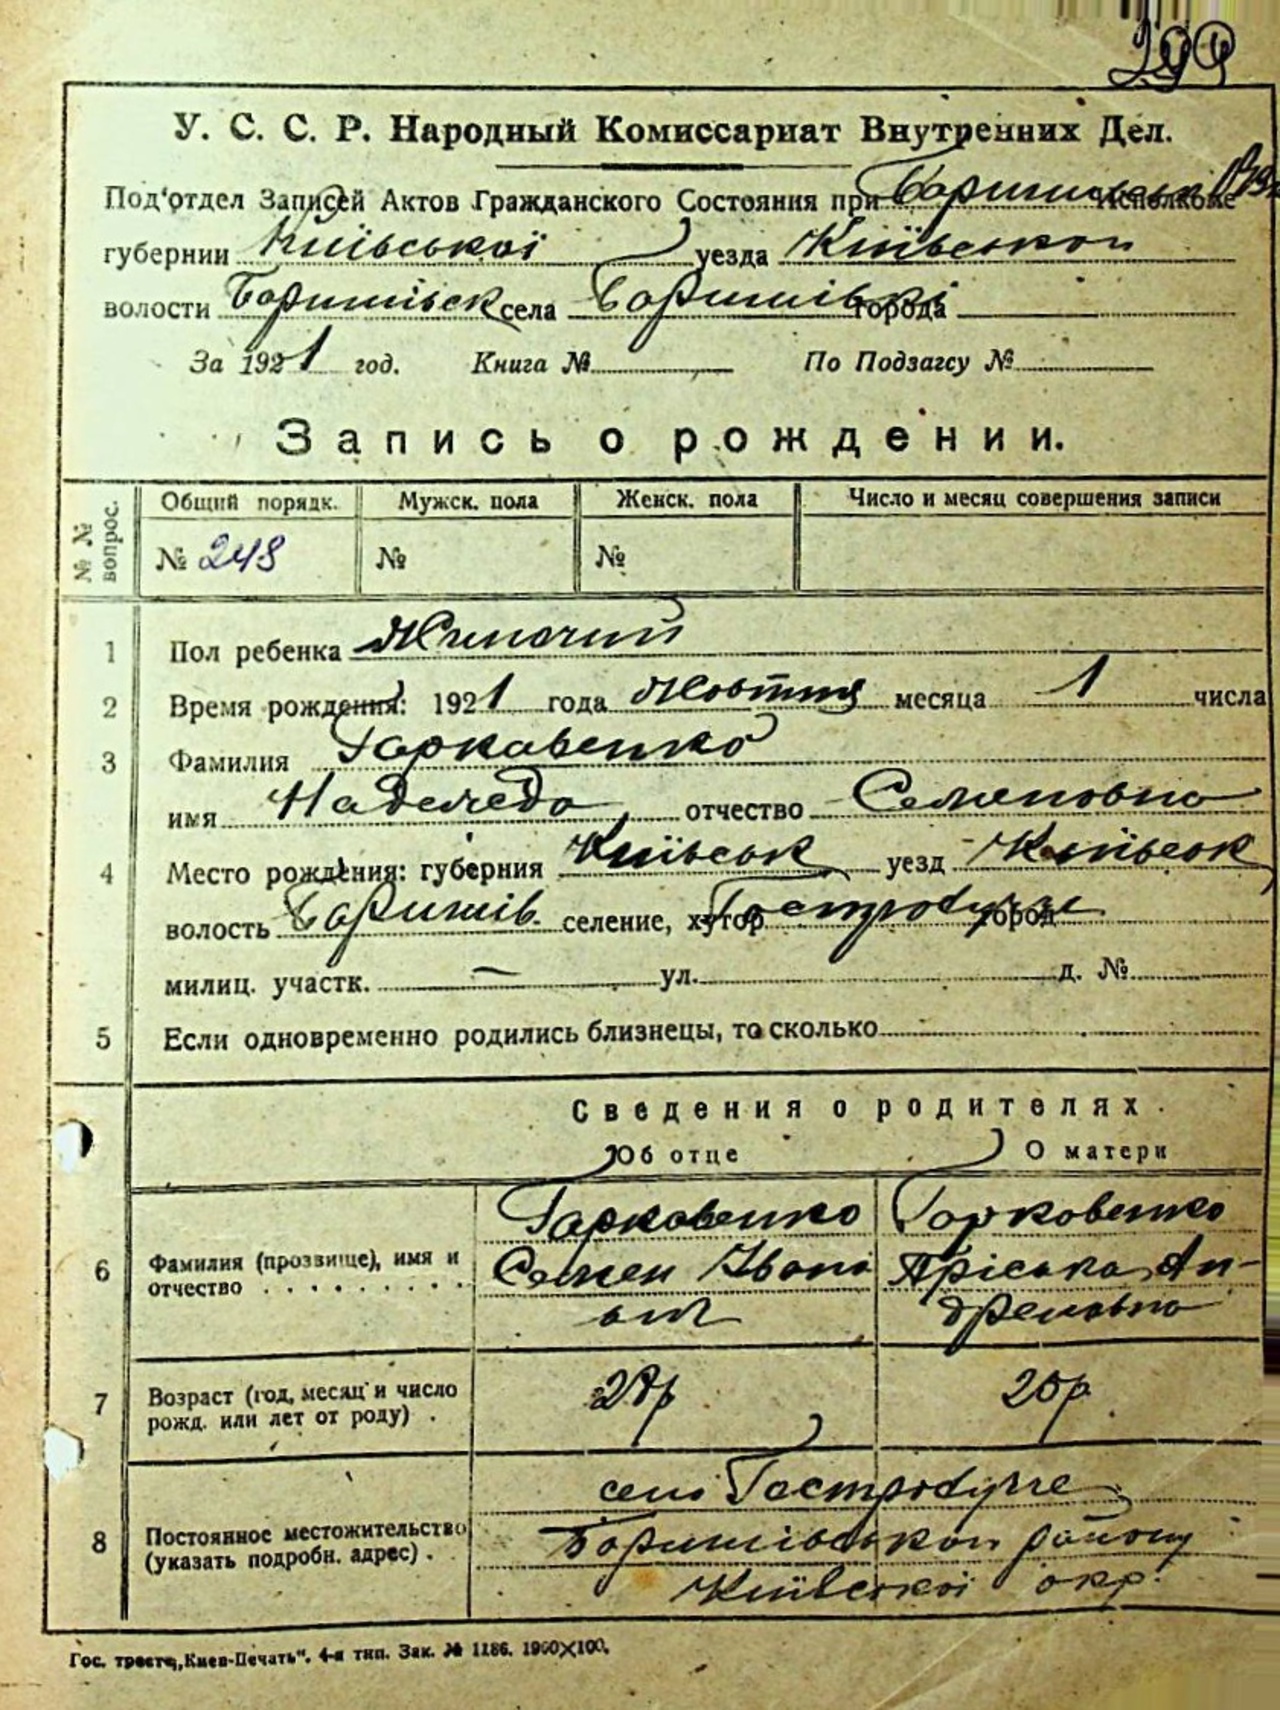 299
У. С. С. Р. Народный Комиссариат Внутренних Дел.
Под'отдел Записей Актов Гражданского Состояния при Исполкоме
губернии Київської уезда Київської
волости Баришівськ села Баришівкі города
За 1921 год. Книга № По Подзагсу №
Запись о рождении.
№№ вопрос.
Общий порядк. Мужск. пола Женск. пола Число и месяц совершения записи
№ 248 № №
1 Пол ребенка Жиночий
2 Время рождения: 1921 года Жовтня месяца 1 числа
3 Фамилия Гаркавенко
имя Надежда отчество Семеновна
4 Место рождения: губерния Київськ уезд Київськ
волость Баришів. селение, хутор город
милиц. участк. — ул. д. №
5 Если одновременно родились близнецы, то сколько
Сведения о родителях.
Об отце О матери
Гарковенко Горковенко
6 Фамилия (прозвище), имя и Семен Івано Пріська Ан-
отчество . . . . . . . . вич дреновна
7 Возраст (год, месяц и число рожд. или лет от роду) . 25р
село
8 Постоянное местожительство Баришівської району
(указать подробн. адрес) . Київської окр.
Гос. трест „Киев-Печать“. 4-я тип. Зак. № 1186. 1900×100.